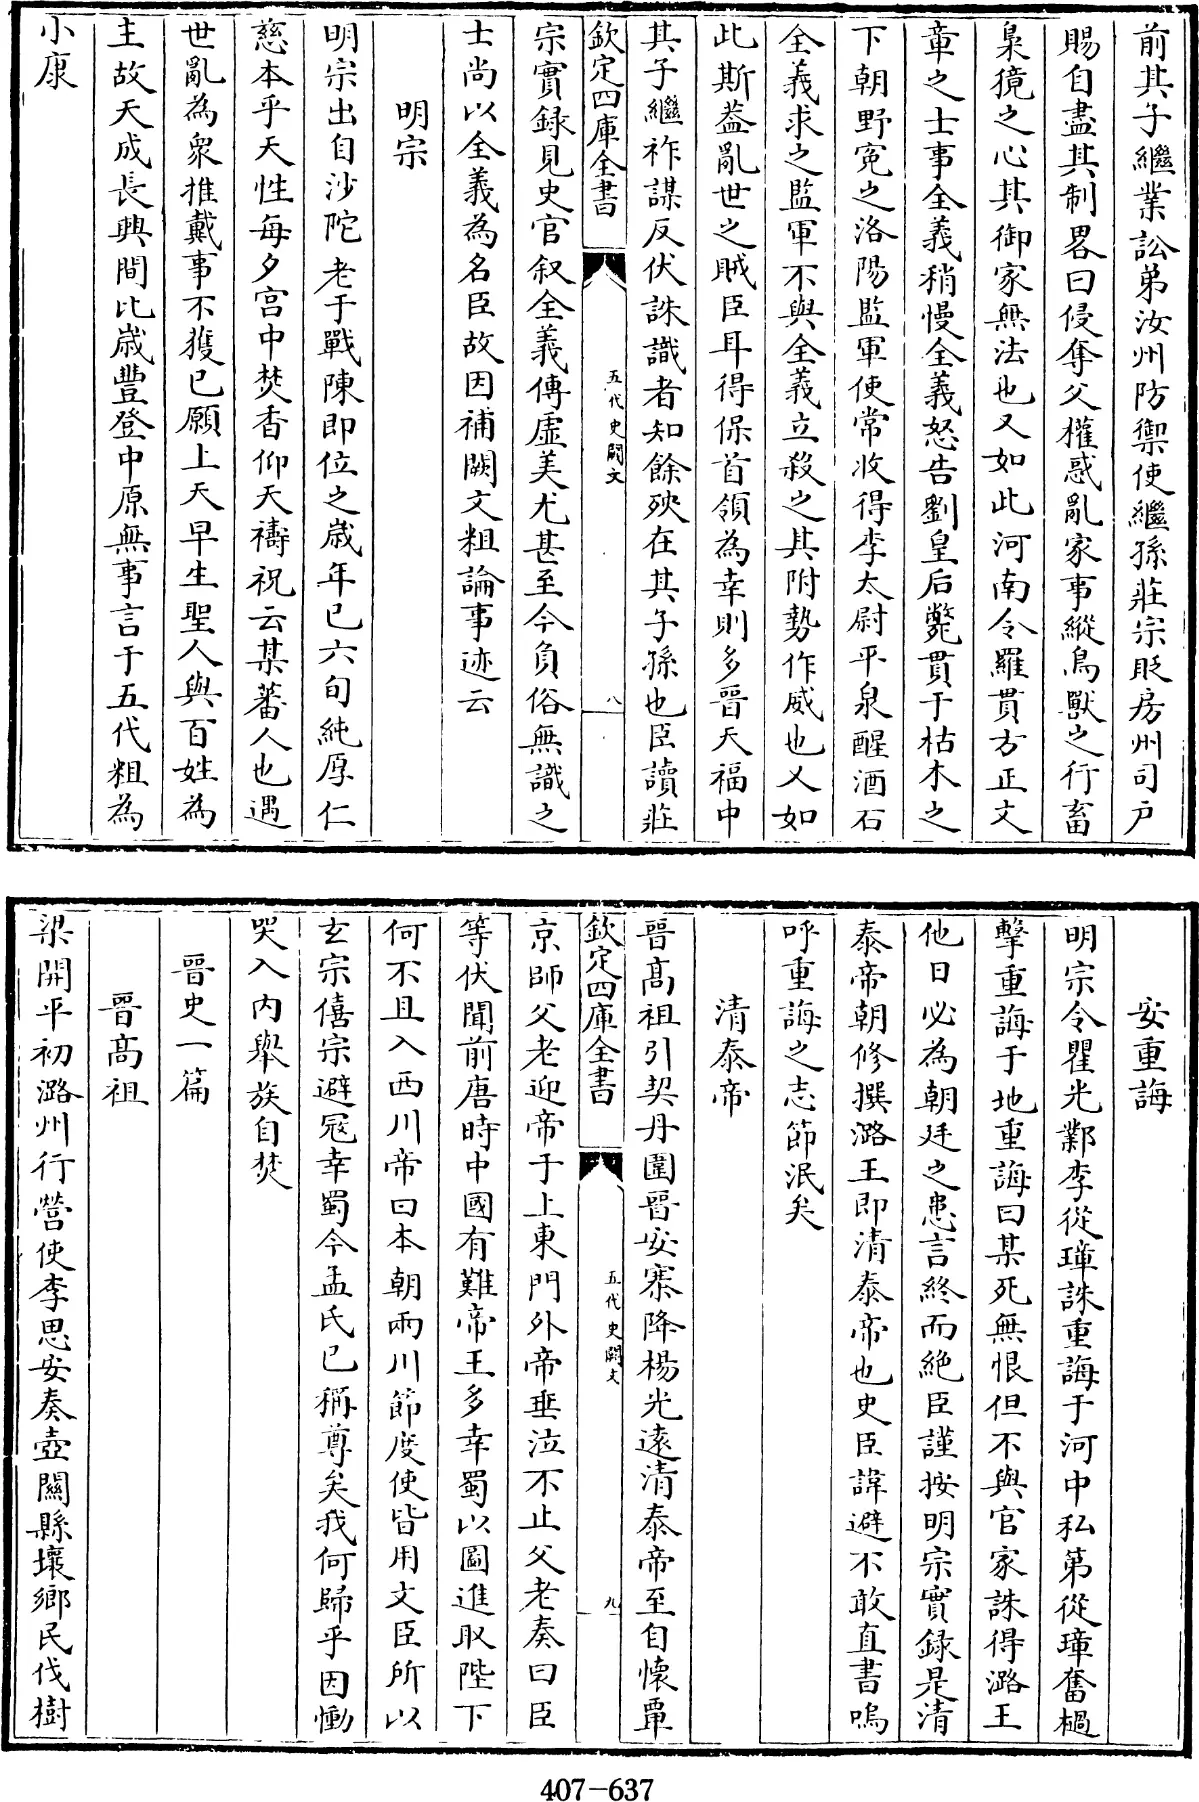 前其子繼業訟弟汝州防禦使繼孫莊宗貶房州司户
賜自盡其制畧曰侵奪父權惑亂家事縱鳥獸之行畜
梟獍之心其御家無法也又如此河南令羅貫方正文
章之士事全義稍慢全義怒告劉皇后斃貫于枯木之
下朝野寃之洛陽監軍使常收得李太尉平泉醒酒石
全義求之監軍不與全義立殺之其附勢作威也又如
此斯葢亂世之賊臣耳得保首領為幸則多晉天福中
其子繼祚謀反伏誅識者知餘殃在其子孫也臣讀莊
欽定四庫全書
五代史闕文
八
宗實録見史官叙全義傳虛美尤甚至今負俗無識之
士尚以全義為名臣故因補闕文粗論事迹云
明宗
明宗出自沙陀老于戰陳即位之歲年已六旬純厚仁
慈本乎天性每夕宫中焚香仰天禱祝云某蕃人也遇
世亂為衆推戴事不獲已願上天早生聖人與百姓為
主故天成長興間比歲豐登中原無事言于五代粗為
小康
安重誨
明宗令瞿光鄴李從璋誅重誨于河中私第從璋奮檛
擊重誨于地重誨曰某死無恨但不與官家誅得潞王
他日必為朝廷之患言終而絶臣謹按明宗實録是清
泰帝朝修撰潞王即清泰帝也史臣諱避不敢直書嗚
呼重誨之志節泯矣
清泰帝
晉高祖引契丹圍晉安寨降楊光逺清泰帝至自懷覃
欽定四庫全書
五代史闕文
九
京師父老迎帝于上東門外帝垂泣不止父老奏曰臣
等伏聞前唐時中國有難帝王多幸蜀以圖進取陛下
何不且入西川帝曰本朝兩川節度使皆用文臣所以
玄宗僖宗避宼幸蜀今孟氏已稱尊矣我何歸乎因慟
哭入内舉族自焚
晉史一篇
晉高祖
梁開平初潞州行營使李思安奏壺關縣壤鄉民伐樹
407-637